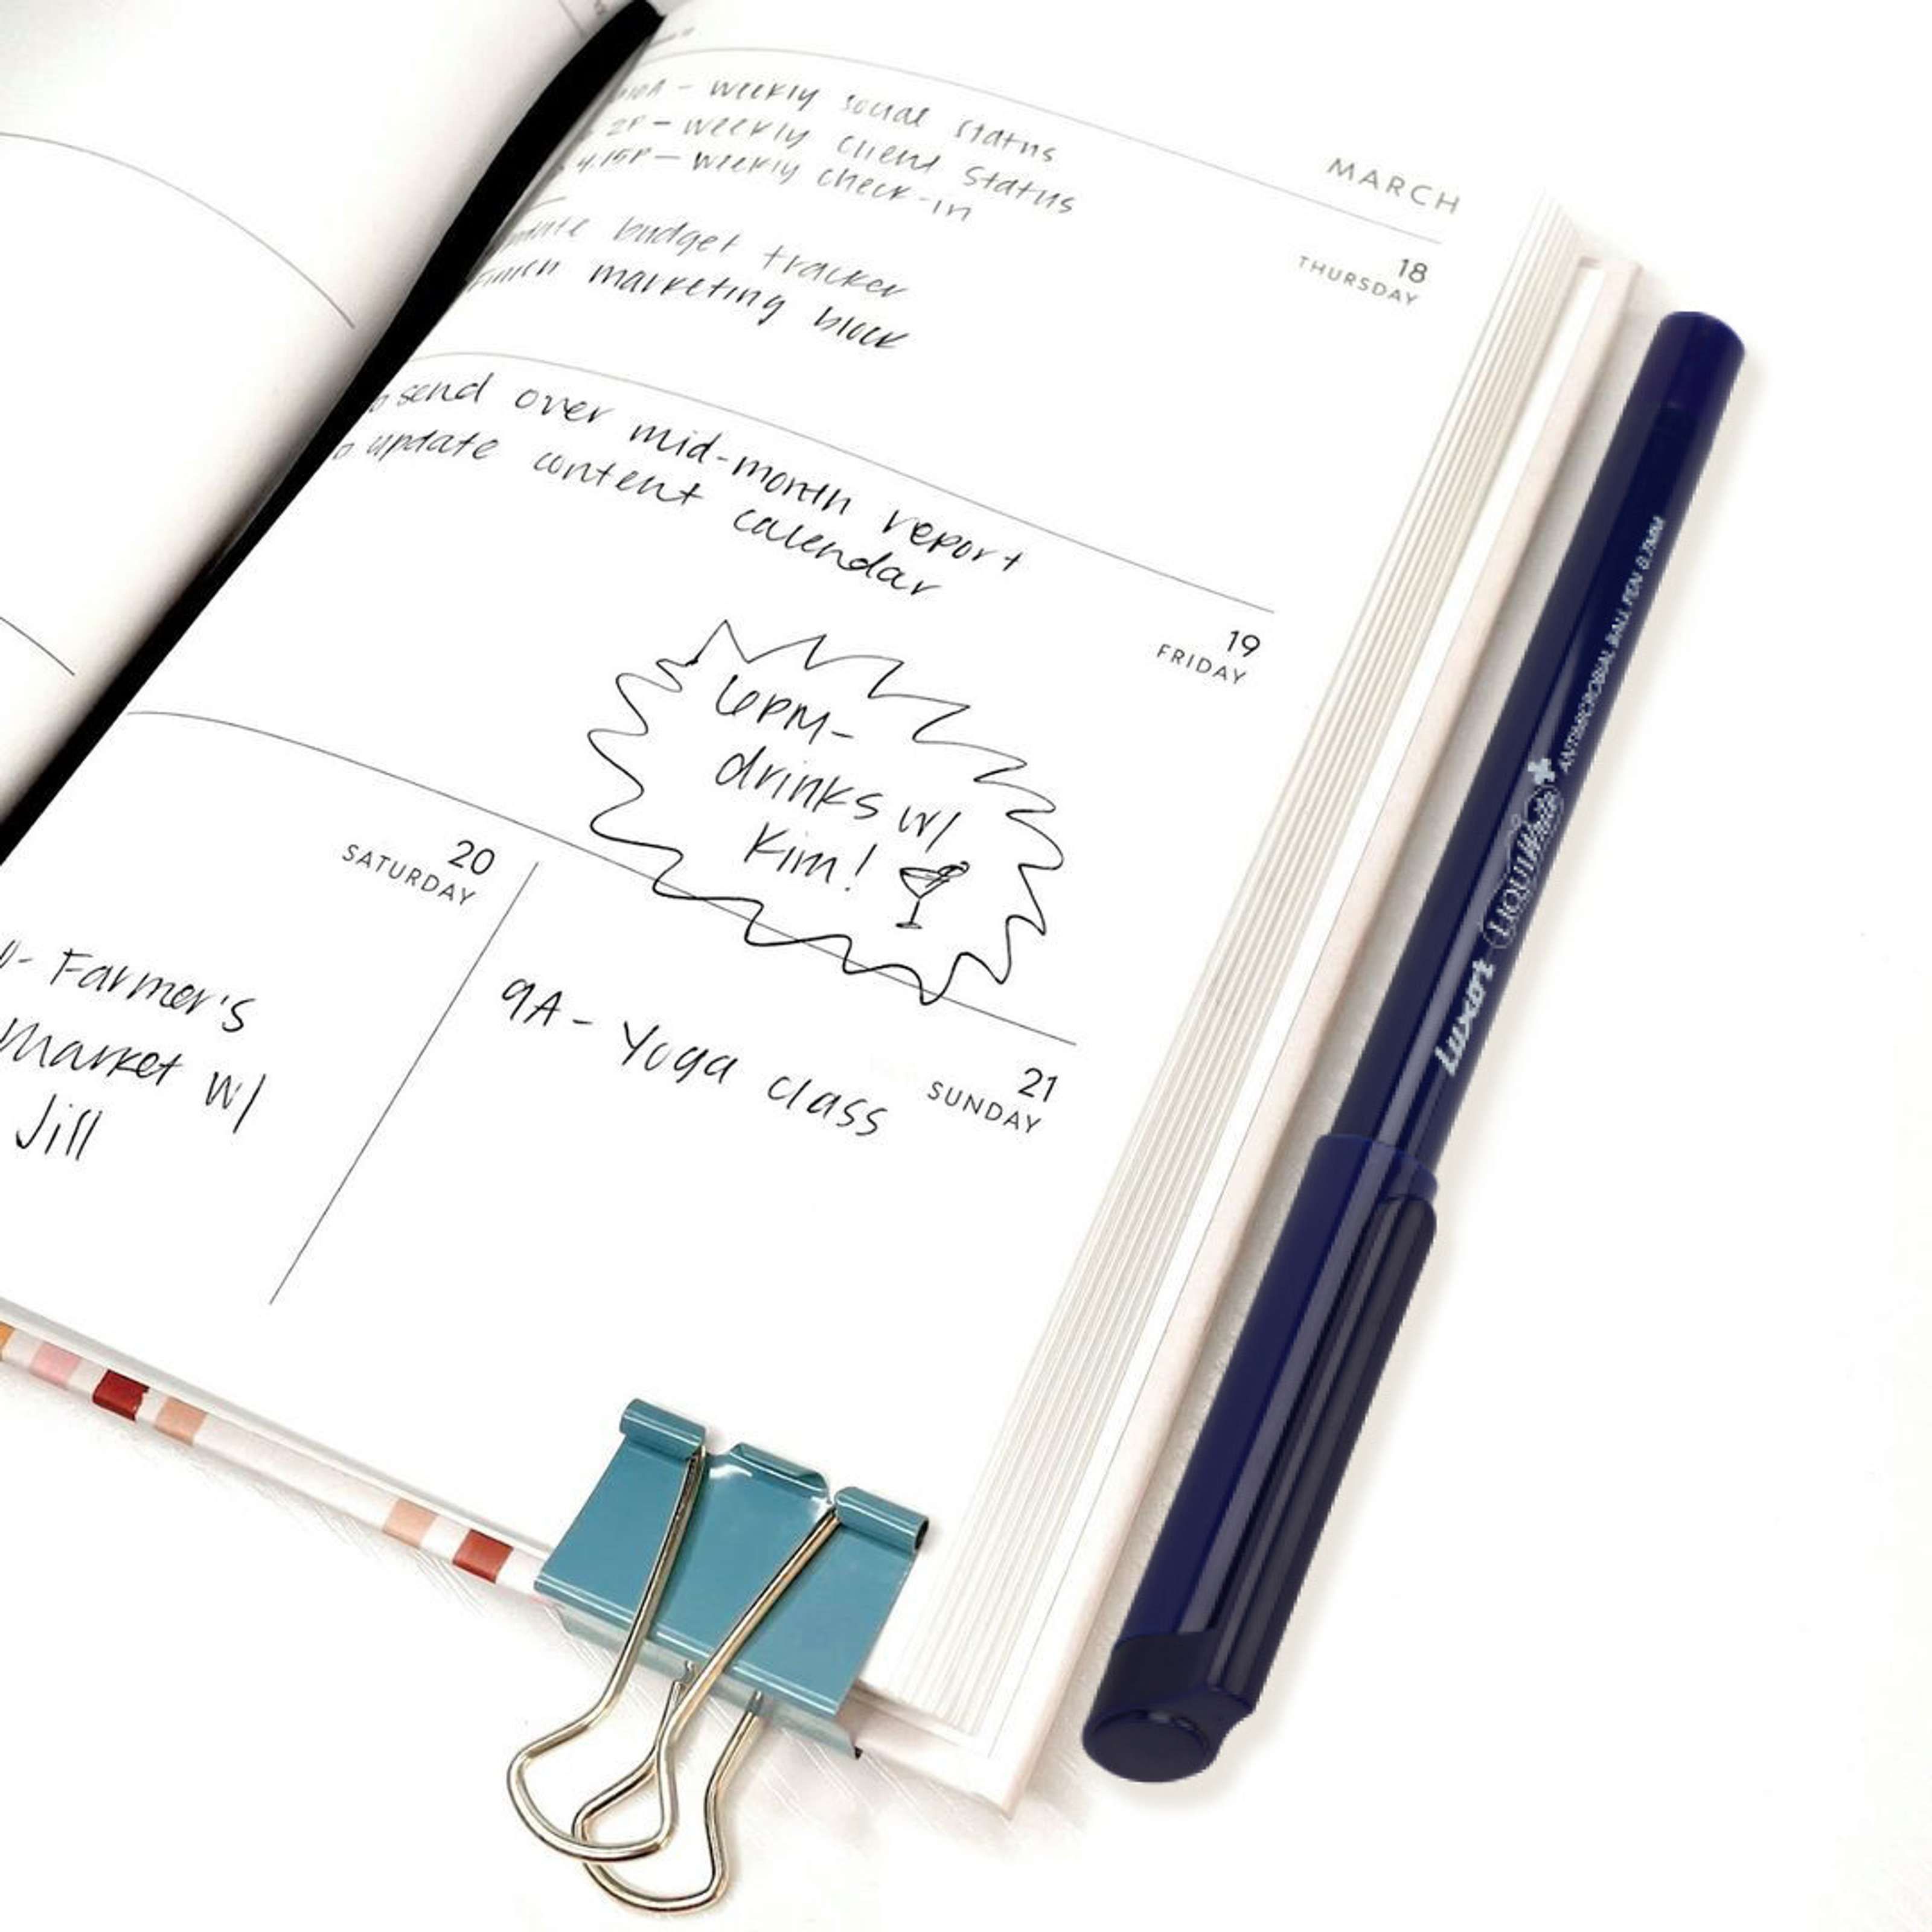 MARCH
18
THURSDAY
10A - weekly social status
2P - weekly client status
4:15P - weekly check-in
update budget tracker
finish marketing block
19
FRIDAY
send over mid-month report
update content
calendar
6PM-
drinks w/
Kim!
20
SATURDAY
- Farmer's
Market w/
Jill
21
SUNDAY
9A - Yoga class
Luxor LIQUIWrite ANTIMICROBIAL BALL PEN 0.7MM